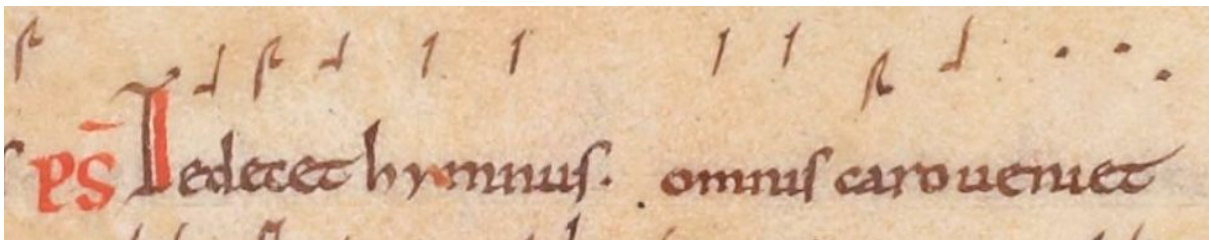 PS̄ Te decet hymnus. omnis caro ueniet